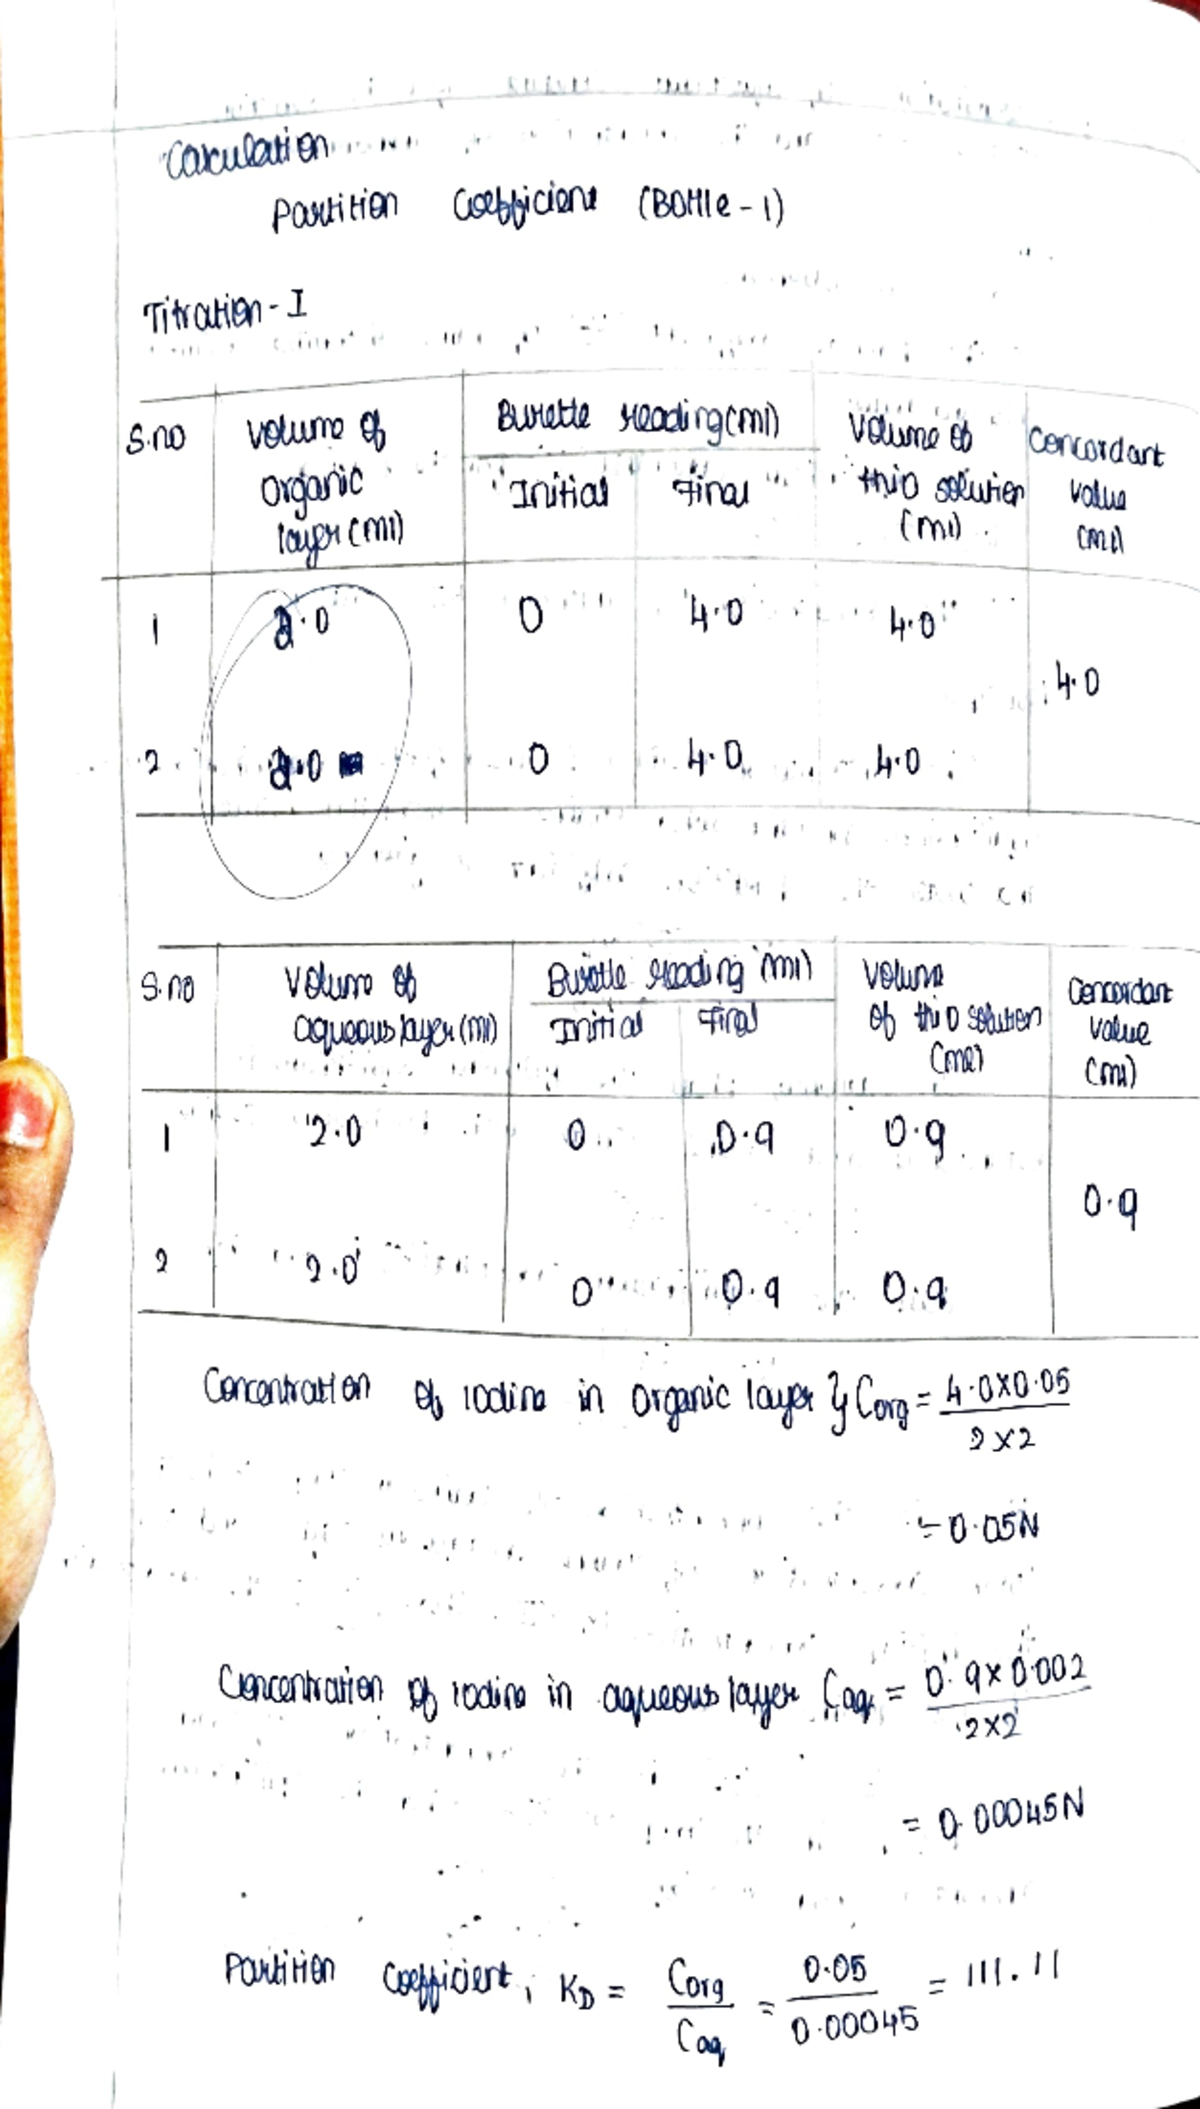 Calculation
Partition Coefficient (Bottle-1)
Titration-I
S.no
Volume of
Organic
layer (ml)
Burette reading (ml)
Initial
Final
Volume of
thio solution
(ml)
Concordant
value
(ml)
1
2.0
0
4.0
4.0
4.0
2
2.0
0
4.0
4.0
S.no
Volume of
aqueous layer (ml)
Burette reading (ml)
Initial
Final
Volume
of thio solution
(ml)
Concordant
value
(ml)
1
2.0
0
0.9
0.9
0.9
2
2.0
0
0.9
0.9
Concentration of iodine in organic layer } Corg = 4.0x0.05
2x2
= 0.05N
Concentration of iodine in aqueous layer Caq = 0.9x0.002
2x2
= 0.00045N
Partition Coefficient, KD = Corg / Caq = 0.05 / 0.00045 = 111.11